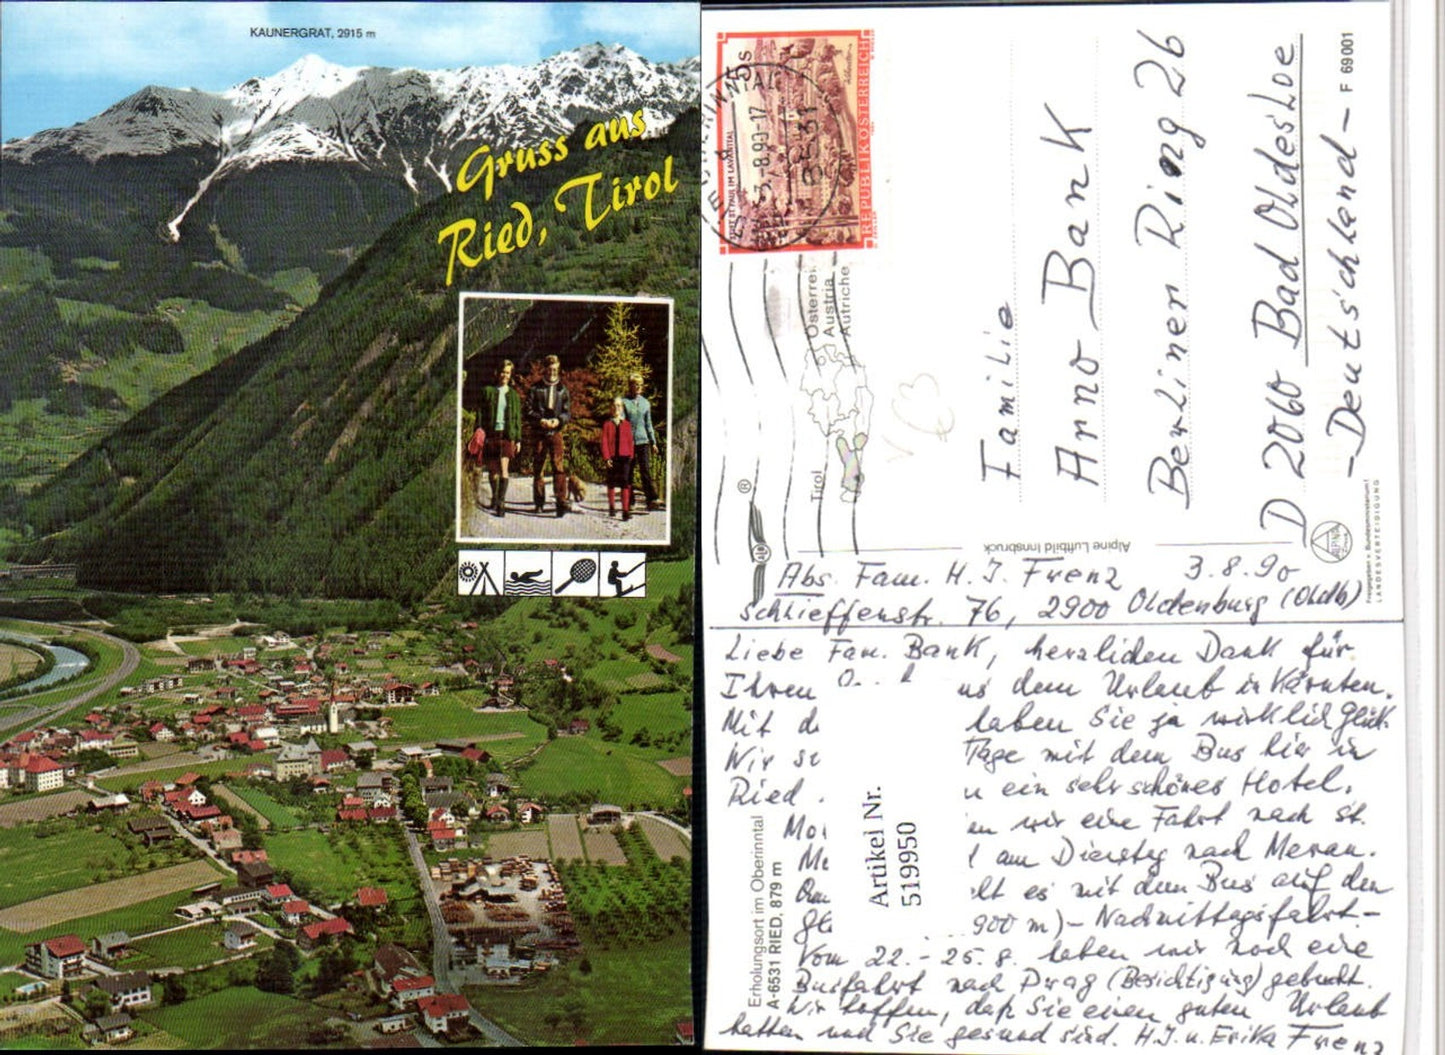 KAUNERGRAT, 2915 m
Gruss aus
Ried, Tirol
5 S
STIFT ST. PAUL IM LAVANTTAL
REPUBLIK ÖSTERREICH
-3.-8.90-17
6531
Österrei
Austria
Autriche
Tirol
®
Alpine Luftbild Innsbruck
Familie
Arno Bank
Berliner Ring 26
D 2060 Bad Oldesloe
-Deutschland-
F 69 001
ALPINA
Freigegeben v. Bundesministerium f.
LANDESVERTEIDIGUNG
Abs. Fam. H. J. Frenz 3.8.90
Schlieffenstr. 76, 2900 Oldenburg (Oldb)
Liebe Fam. Bank, herzlichen Dank für
Ihren us dem Urlaub in Kärnten.
Mit d haben Sie ja wirklich Glück
Wir s Tage mit dem Bus hier in
Ried. ein sehr schönes Hotel.
Mo en wir eine Fahrt nach St.
M am Dienstag nach Meran.
lt es mit dem Bus auf den
Gl 900 m) - Nachmittagsfahrt -
Vom 22. - 25.8. haben wir noch eine
Busfahrt nach Prag (Besichtigung) gebucht.
Wir hoffen, daß Sie einen guten Urlaub
hatten und Sie gesund sind. H.J. u. Erika Frenz
Artikel Nr.
519950
Erholungsort im Oberinntal
A-6531 RIED, 879 m